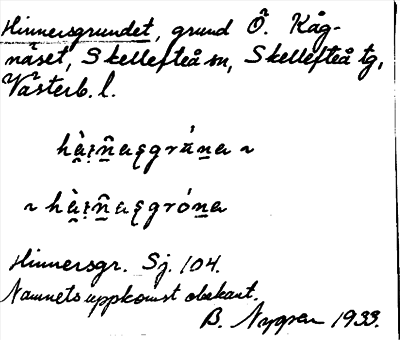 Hinnersgrundet, grund Ö. Kåg-
näset, Skellefteå sn, Skellefteå tg,
Västerb. l.
Hinnersgr. Sj. 104.
Namnets uppkomst obekant.
B. Nygren 1933.